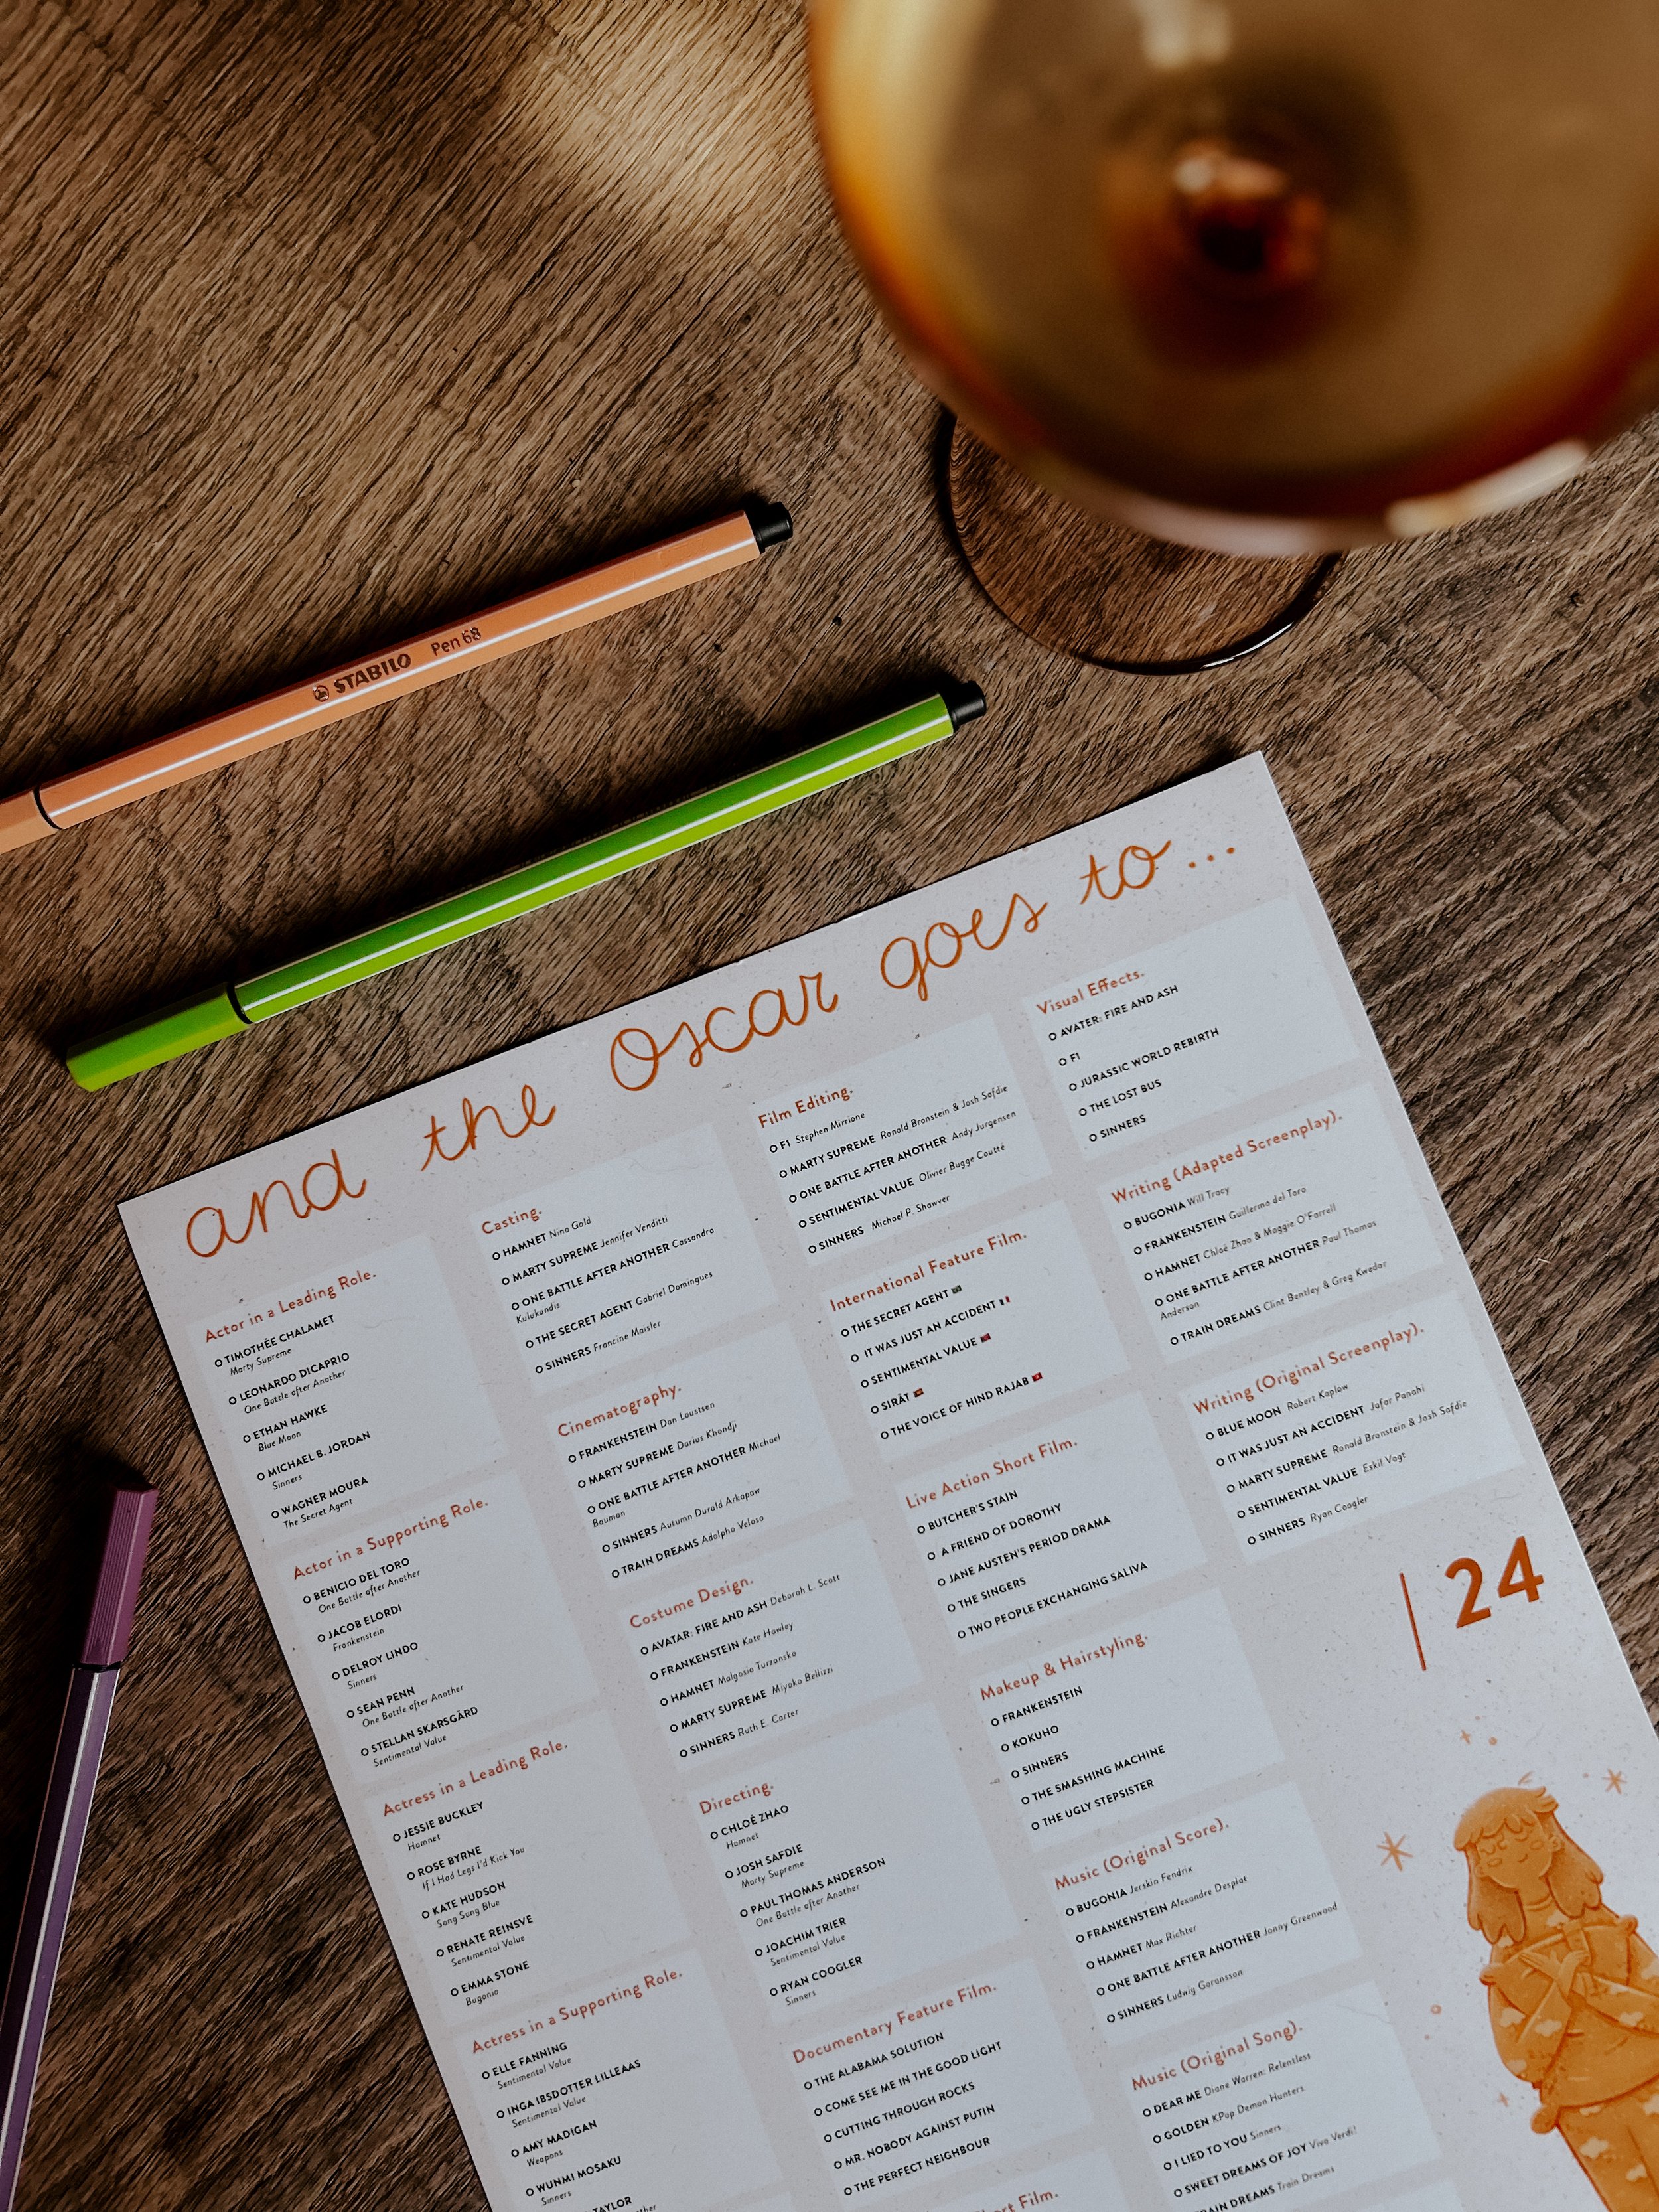 STABILO Pen 68
and the Oscar goes to...
Actor in a Leading Role.
TIMOTHÉE CHALAMET
Marty Supreme
LEONARDO DICAPRIO
One Battle after Another
ETHAN HAWKE
Blue Moon
MICHAEL B. JORDAN
Sinners
WAGNER MOURA
The Secret Agent
Actor in a Supporting Role.
BENICIO DEL TORO
One Battle after Another
JACOB ELORDI
Frankenstein
DELROY LINDO
Sinners
SEAN PENN
One Battle after Another
STELLAN SKARSGÅRD
Sentimental Value
Actress in a Leading Role.
JESSIE BUCKLEY
Hamnet
ROSE BYRNE
If I Had Legs I'd Kick You
KATE HUDSON
Song Sung Blue
RENATE REINSVE
Sentimental Value
EMMA STONE
Bugonia
Actress in a Supporting Role.
ELLE FANNING
Sentimental Value
INGA IBSDOTTER LILLEAAS
Sentimental Value
AMY MADIGAN
Weapons
WUNMI MOSAKU
Sinners
TAYLOR
Casting.
HAMNET Nina Gold
MARTY SUPREME Jennifer Venditti
ONE BATTLE AFTER ANOTHER Cassandra
Kulukundis
THE SECRET AGENT Gabriel Domingues
SINNERS Francine Maisler
Cinematography.
FRANKENSTEIN Dan Laustsen
MARTY SUPREME Darius Khondji
ONE BATTLE AFTER ANOTHER Michael
Bauman
SINNERS Autumn Durald Arkapaw
TRAIN DREAMS Adolpho Veloso
Costume Design.
AVATAR: FIRE AND ASH Deborah L. Scott
FRANKENSTEIN Kate Hawley
HAMNET Malgosia Turzanska
MARTY SUPREME Miyako Bellizzi
SINNERS Ruth E. Carter
Directing.
CHLOÉ ZHAO
Hamnet
JOSH SAFDIE
Marty Supreme
PAUL THOMAS ANDERSON
One Battle after Another
JOACHIM TRIER
Sentimental Value
RYAN COOGLER
Sinners
Documentary Feature Film.
THE ALABAMA SOLUTION
COME SEE ME IN THE GOOD LIGHT
CUTTING THROUGH ROCKS
MR. NOBODY AGAINST PUTIN
THE PERFECT NEIGHBOUR
Film Editing.
F1 Stephen Mirrione
MARTY SUPREME Ronald Bronstein & Josh Safdie
ONE BATTLE AFTER ANOTHER Andy Jurgensen
SENTIMENTAL VALUE Olivier Bugge Coutté
SINNERS Michael P. Shawver
International Feature Film.
THE SECRET AGENT
IT WAS JUST AN ACCIDENT
SENTIMENTAL VALUE
SIRÂT
THE VOICE OF HIND RAJAB
Live Action Short Film.
BUTCHER'S STAIN
A FRIEND OF DOROTHY
JANE AUSTEN'S PERIOD DRAMA
THE SINGERS
TWO PEOPLE EXCHANGING SALIVA
Makeup & Hairstyling.
FRANKENSTEIN
KOKUHO
SINNERS
THE SMASHING MACHINE
THE UGLY STEPSISTER
Music (Original Score).
BUGONIA Jerskin Fendrix
FRANKENSTEIN Alexandre Desplat
HAMNET Max Richter
ONE BATTLE AFTER ANOTHER Jonny Greenwood
SINNERS Ludwig Goransson
Music (Original Song).
DEAR ME Diane Warren: Relentless
GOLDEN KPop Demon Hunters
I LIED TO YOU Sinners
SWEET DREAMS OF JOY Viva Verdi!
TRAIN DREAMS Train Dreams
Visual Effects.
AVATER: FIRE AND ASH
F1
JURASSIC WORLD REBIRTH
THE LOST BUS
SINNERS
Writing (Adapted Screenplay).
BUGONIA Will Tracy
FRANKENSTEIN Guillermo del Toro
HAMNET Chloé Zhao & Maggie O'Farrell
ONE BATTLE AFTER ANOTHER Paul Thomas
Anderson
TRAIN DREAMS Clint Bentley & Greg Kwedar
Writing (Original Screenplay).
BLUE MOON Robert Kaplow
IT WAS JUST AN ACCIDENT Jafar Panahi
MARTY SUPREME Ronald Bronstein & Josh Safdie
SENTIMENTAL VALUE Eskil Vogt
SINNERS Ryan Coogler
| 24